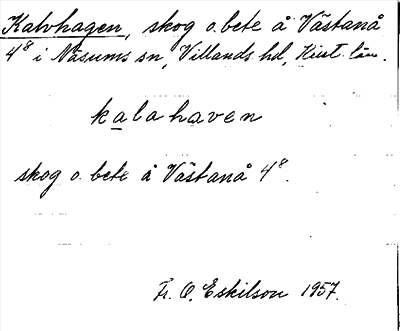 Kalvhagen, skog o. bete å Västanå
4⁸ i Näsums sn, Villands hd, Krist. län.
kalahaven
skog o. bete å Västanå 4⁸.
Fr. O. Eskilson 1957.